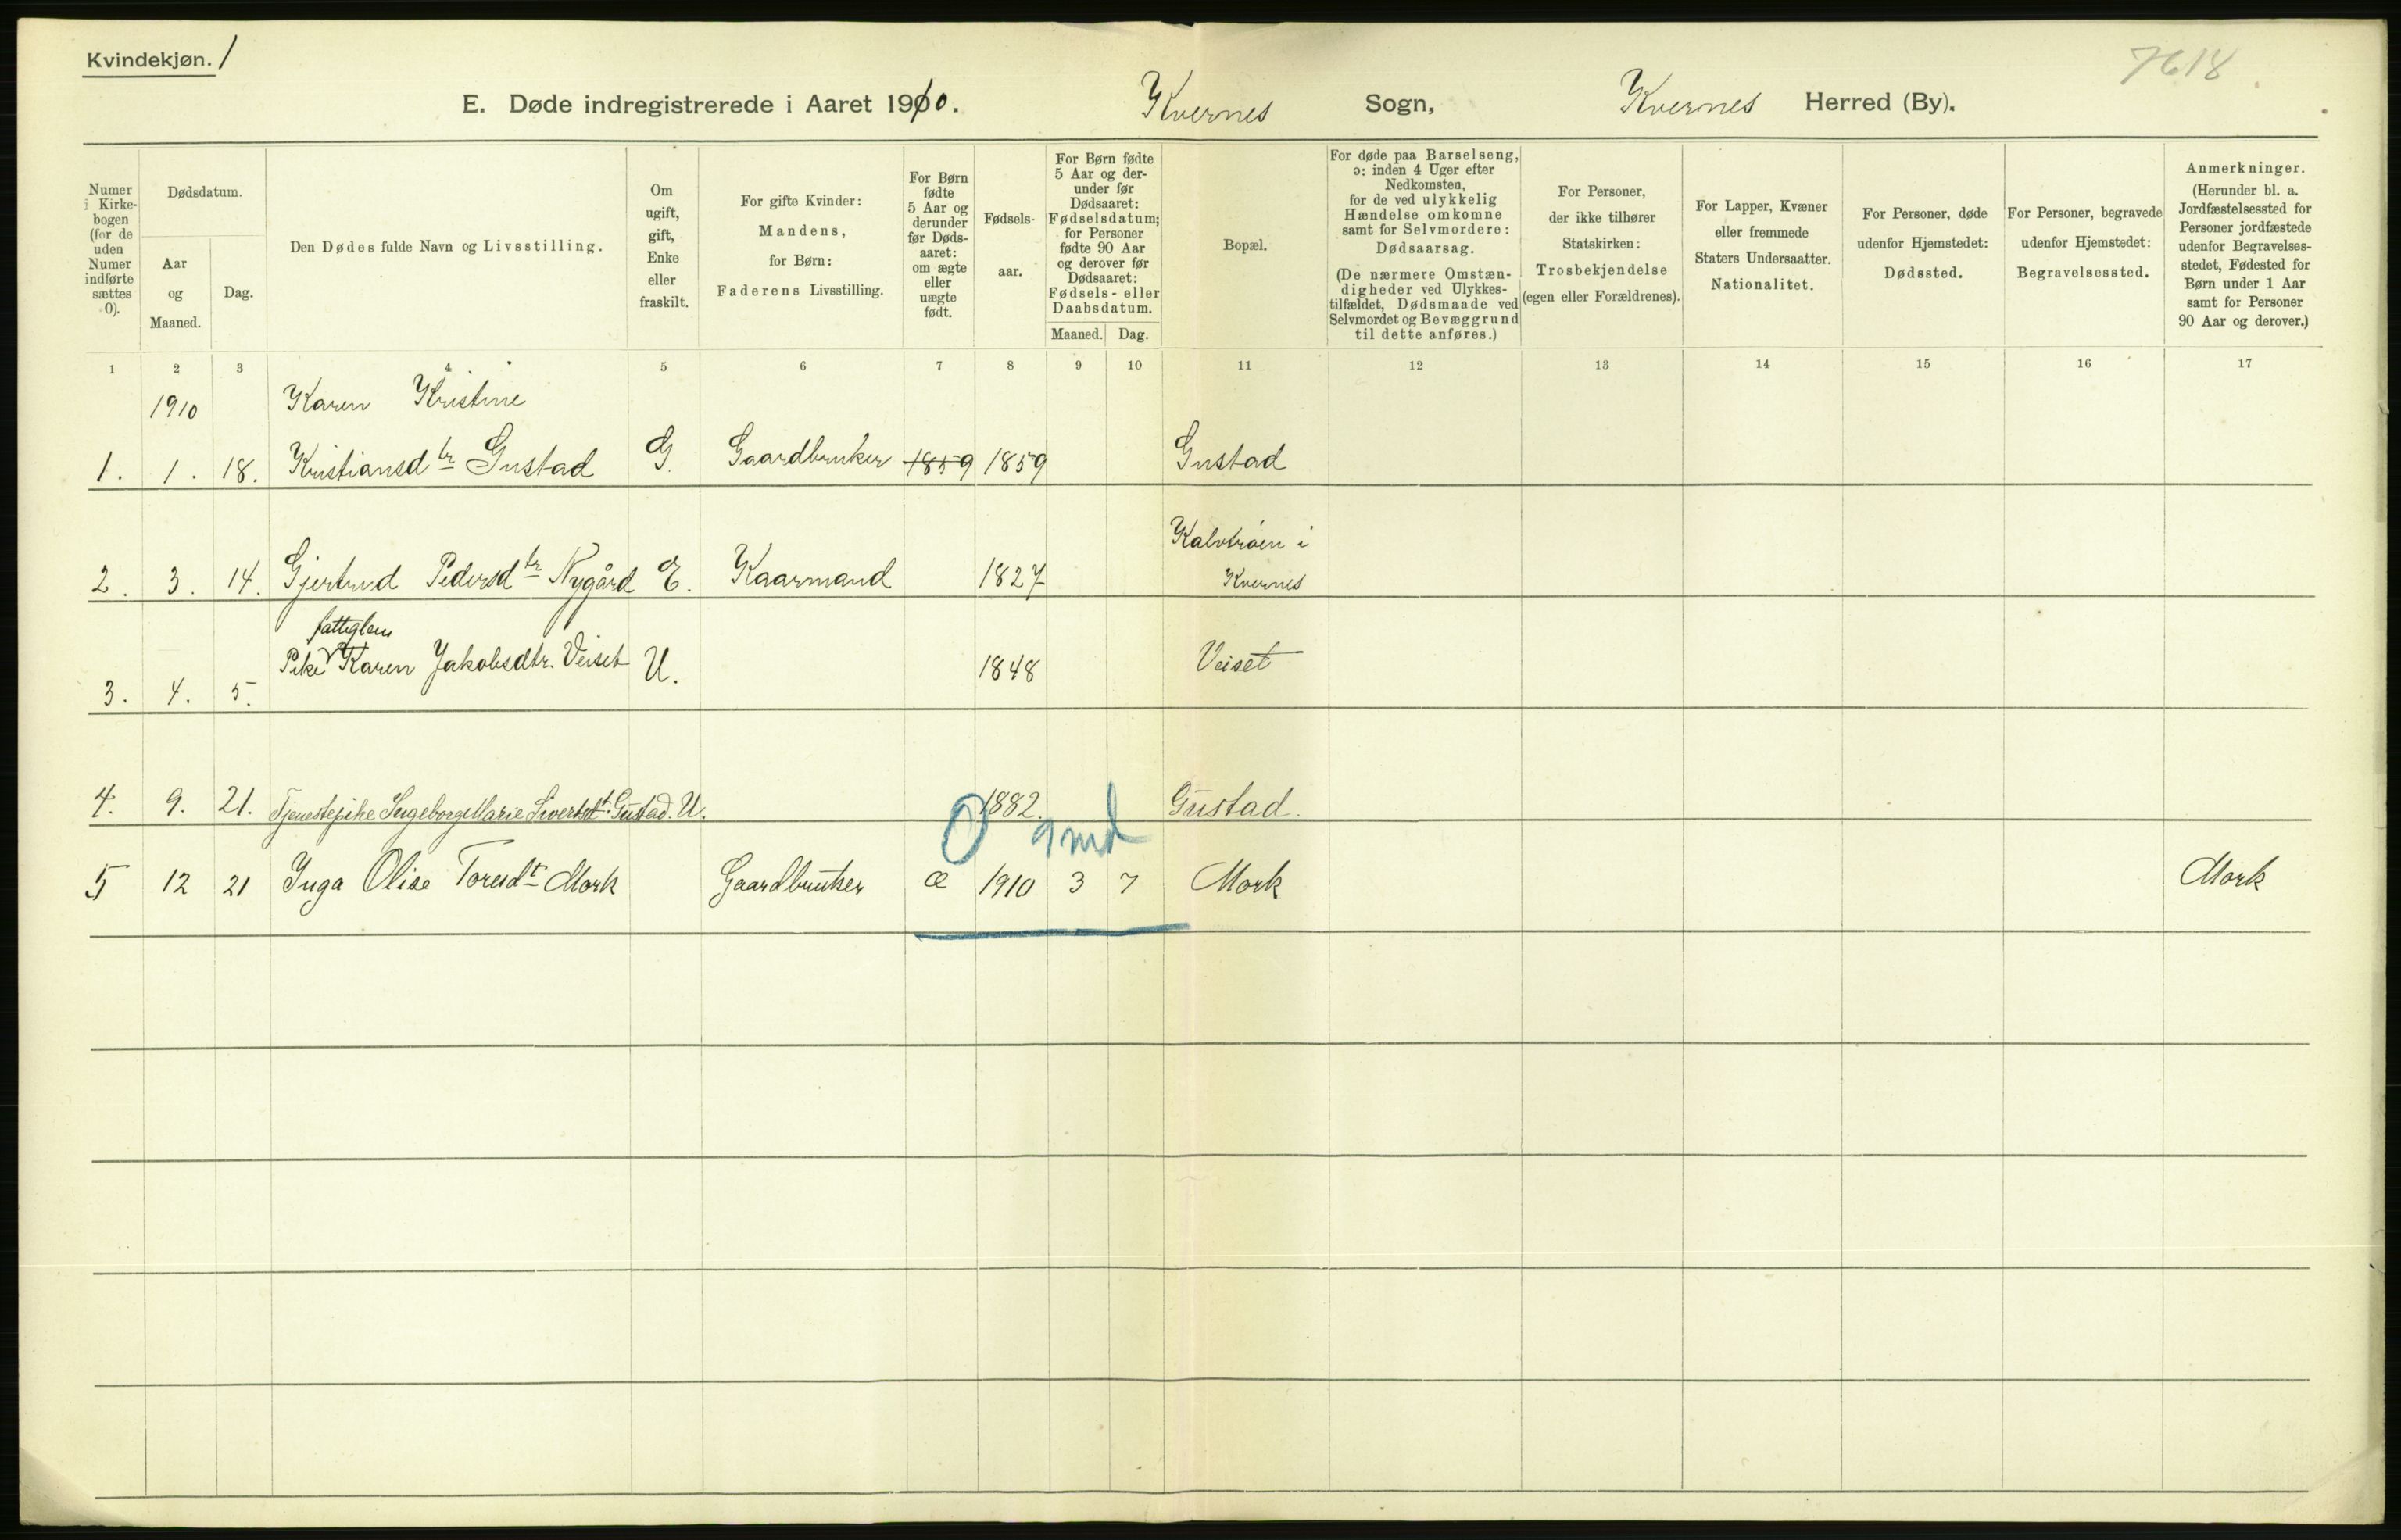 Kvindekjøn. 1
7618
E. Døde indregistrerede i Aaret 1910. Kvernes Sogn, Kvernes Herred (By).
Numer i Kirke-bogen (for de uden Numer indførte sættes 0).
Dødsdatum.
Aar og Maaned.
Dag.
Den Dødes fulde Navn og Livsstilling.
Om ugift, gift, Enke eller fraskilt.
For gifte Kvinder: Mandens, for Børn: Faderens Livsstilling.
For Børn fødte 5 Aar og derunder før Døds-aaret: om ægte eller uægte født.
Fødsels-aar.
For Børn fødte 5 Aar og der-under før Dødsaaret: Fødselsdatum; for Personer fødte 90 Aar og derover før Dødsaaret: Fødsels- eller Daabsdatum.
Maaned. Dag.
Bopæl.
For døde paa Barselseng, ɔ: inden 4 Uger efter Nedkomsten, for de ved ulykkelig Hændelse omkomne samt for Selvmordere: Dødsaarsag. (De nærmere Omstæn-digheder ved Ulykkes-tilfældet, Dødsmaade ved Selvmordet og Bevæggrund til dette anføres.)
For Personer, der ikke tilhører Statskirken: Trosbekjendelse (egen eller Forældrenes).
For Lapper, Kvæner eller fremmede Staters Undersaatter. Nationalitet.
For Personer, døde udenfor Hjemstedet: Dødssted.
For Personer, begravede udenfor Hjemstedet: Begravelsessted.
Anmerkninger. (Herunder bl. a. Jordfæstelsessted for Personer jordfæstede udenfor Begravelses-stedet, Fødested for Børn under 1 Aar samt for Personer 90 Aar og derover.)
1 2 3 4 5 6 7 8 9 10 11 12 13 14 15 16 17
1910 Karen Kristine
1. 1. 18. Kristiansdtr Gustad G. Gaardbruker 1859 1859 Gustad
Kalvtrøen i
2. 3. 14. Gjertrud Pedersdtr Nygård E. Kaarmand 1827 Kvernes
fattiglem
3. 4. 5. Pike Karen Jakobsdtr. Veiset U. 1848 Veiset
4. 9. 21. Tjenestepike Ingeborg Marie Sivertsdt. Gustad. U. 1882. Gustad.
0 9 md
5 12 21 Inga Olise Toresdt Mork Gaardbruker æ 1910 3 7 Mork Mork